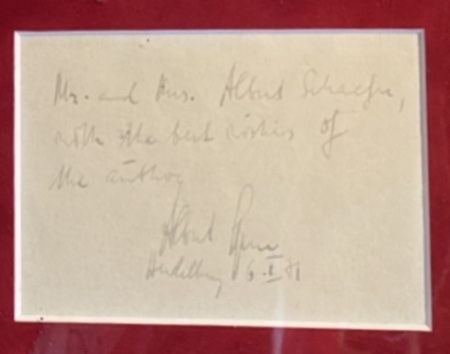 Mr. and Mrs. Albert Schaefer,
with the best wishes of
the author
Albert Speer
Heidelberg 6.I 81